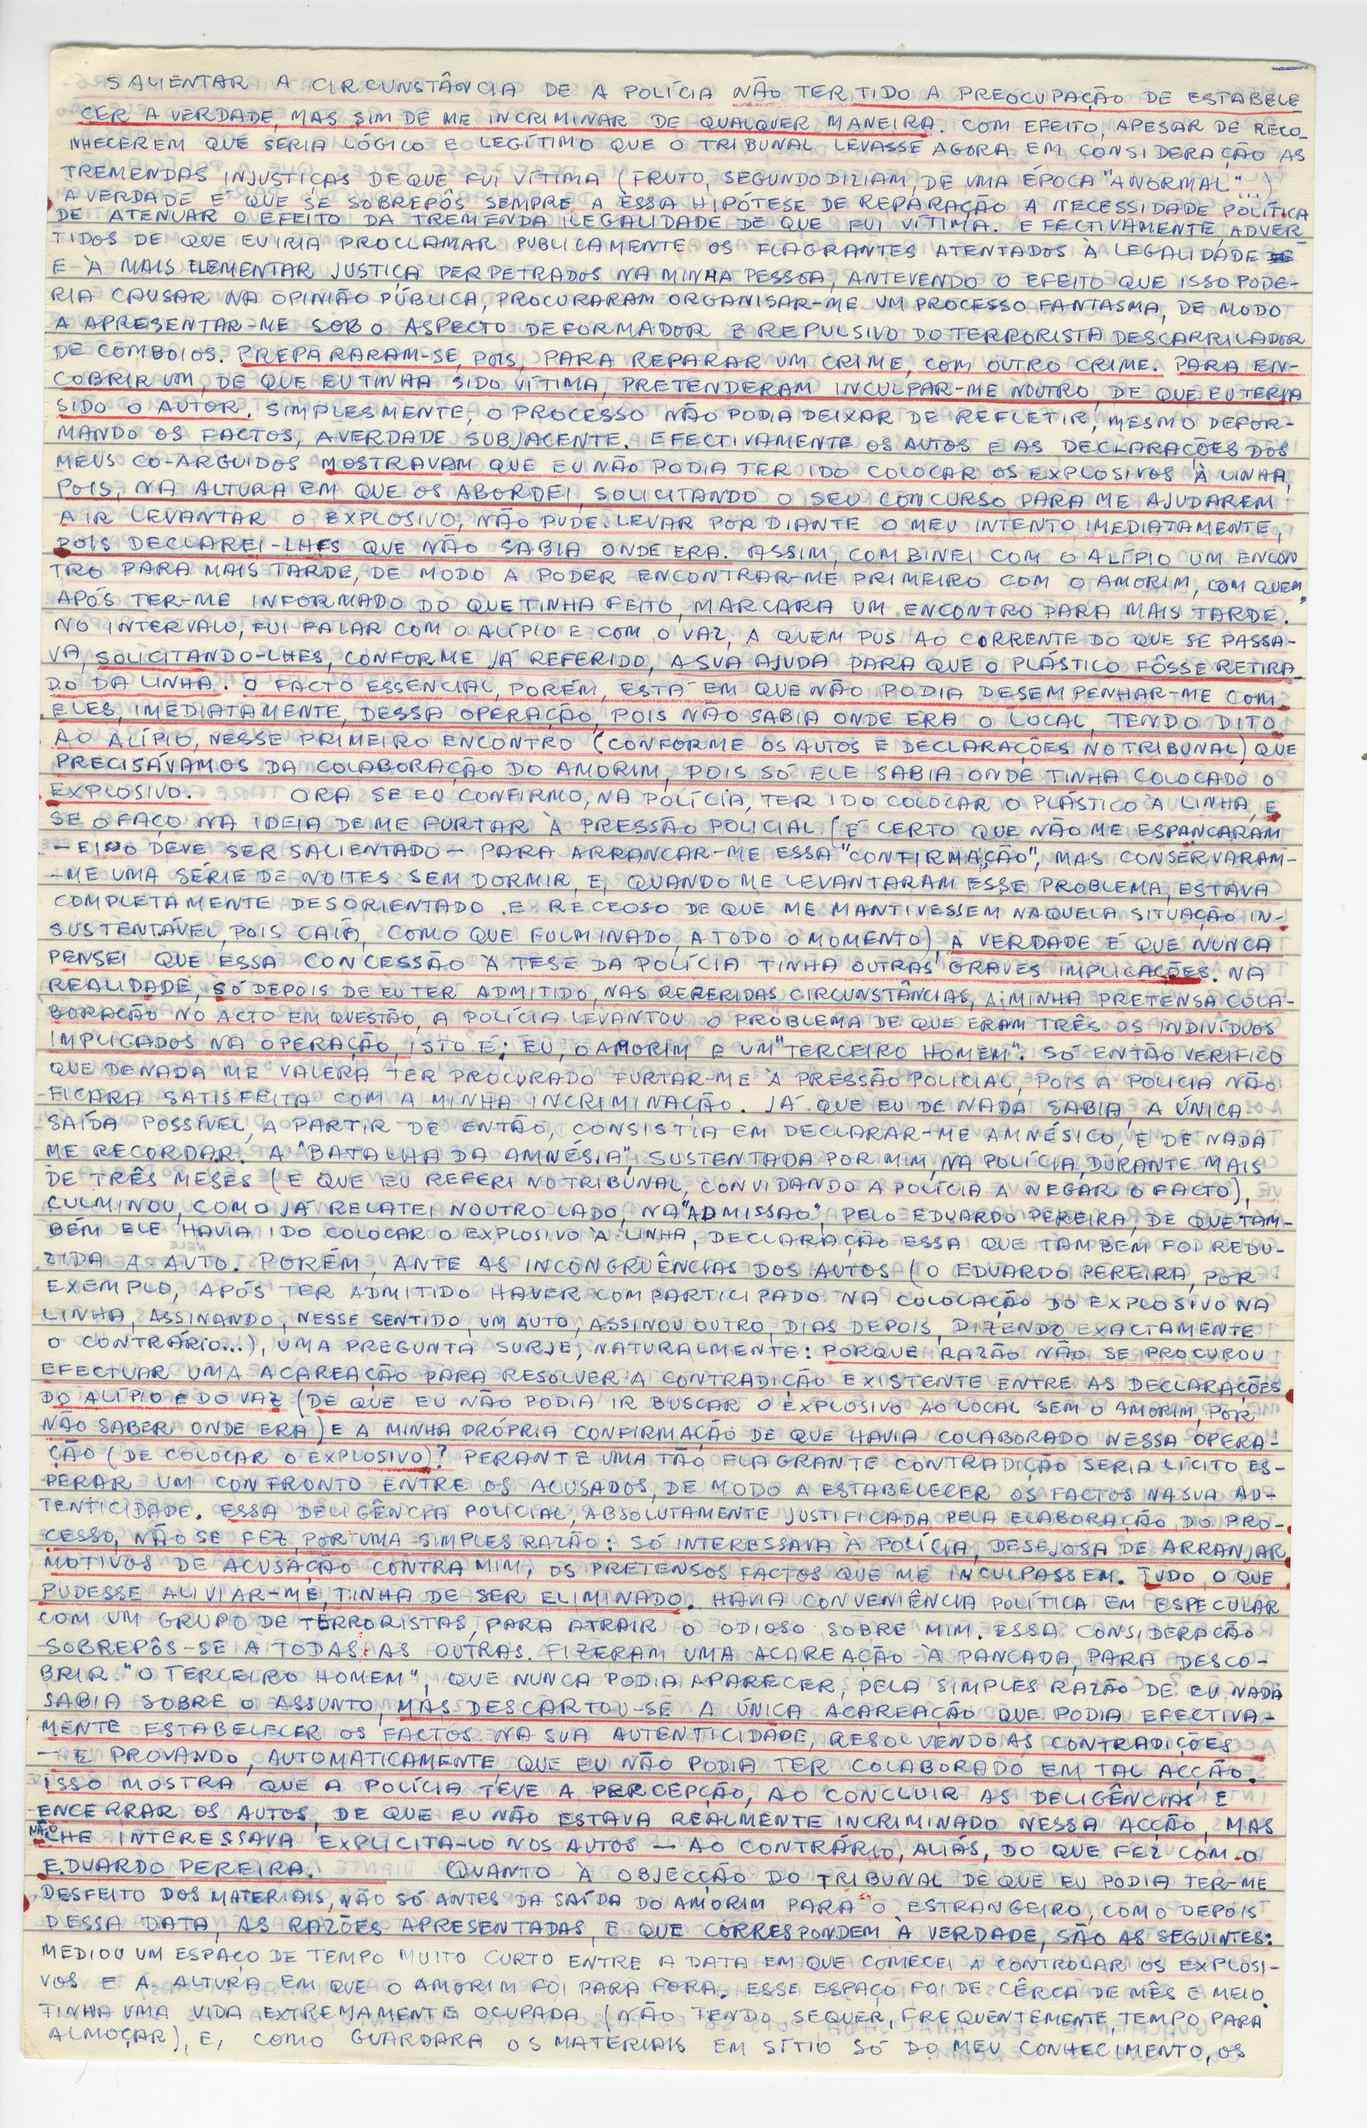 SALIENTAR A CIRCUNSTÂNCIA DE A POLÍCIA NÃO TER TIDO A PREOCUPAÇÃO DE ESTABELE
CER A VERDADE, MAS SIM DE ME INCRIMINAR DE QUALQUER MANEIRA. COM EFEITO, APESAR DE RECO-
NHECEREM QUE SERIA LÓGICO E LEGÍTIMO QUE O TRIBUNAL LEVASSE AGORA EM CONSIDERAÇÃO AS
TREMENDAS INJUSTIÇAS DE QUE FUI VÍTIMA (FRUTO, SEGUNDO DIZIAM, DE UMA ÉPOCA "ANORMAL"...)
A VERDADE É QUE SE SOBREPÔS SEMPRE A ESSA HIPÓTESE DE REPARAÇÃO A NECESSIDADE POLÍTICA
DE ATENUAR O EFEITO DA TREMENDA ILEGALIDADE DE QUE FUI VÍTIMA. EFECTIVAMENTE, ADVER
TIDOS DE QUE EU IRIA PROCLAMAR PUBLICAMENTE OS FLAGRANTES ATENTADOS À LEGALIDADE
E À MAIS ELEMENTAR JUSTIÇA PERPETRADOS NA MINHA PESSOA, ANTEVENDO O EFEITO QUE ISSO PODE-
RIA CAUSAR NA OPINIÃO PÚBLICA, PROCURARAM ORGANISAR-ME UM PROCESSO FANTASMA, DE MODO
A APRESENTAR-ME SOB O ASPECTO DEFORMADOR E REPULSIVO DO TERRORISTA DESCARRILADOR
DE COMBOIOS. PREPARARAM-SE, POIS, PARA REPARAR UM CRIME, COM OUTRO CRIME. PARA EN-
COBRIR UM, DE QUE EU TINHA SIDO VÍTIMA, PRETENDERAM INCULPAR-ME NOUTRO, DE QUE EU TERIA
SIDO O AUTOR. SIMPLESMENTE, O PROCESSO NÃO PODIA DEIXAR DE REFLETIR, MESMO DEFOR-
MANDO OS FACTOS, A VERDADE SUBJACENTE. EFECTIVAMENTE OS AUTOS E AS DECLARAÇÕES DOS
MEUS CO-ARGUIDOS MOSTRAVAM QUE EU NÃO PODIA TER IDO COLOCAR OS EXPLOSIVOS À LINHA,
POIS, NA ALTURA EM QUE OS ABORDEI, SOLICITANDO O SEU CONCURSO PARA ME AJUDAREM
A IR LEVANTAR O EXPLOSIVO, NÃO PUDE LEVAR POR DIANTE O MEU INTENTO IMEDIATAMENTE,
POIS DECLAREI-LHES QUE NÃO SABIA ONDE ERA. ASSIM, COMBINEI COM O ALÍPIO UM ENCON
TRO PARA MAIS TARDE, DE MODO A PODER ENCONTRAR-ME PRIMEIRO COM O AMORIM, COM QUEM,
APÓS TER-ME INFORMADO DO QUE TINHA FEITO, MARCARA UM ENCONTRO PARA MAIS TARDE.
NO INTERVALO, FUI FALAR COM O ALÍPIO E COM O VAZ, A QUEM PUS AO CORRENTE DO QUE SE PASSA-
VA, SOLICITANDO-LHES, CONFORME JÁ REFERIDO, A SUA AJUDA PARA QUE O PLÁSTICO FÔSSE RETIRA-
DO DA LINHA. O FACTO ESSENCIAL, PORÉM, ESTÁ EM QUE NÃO PODIA DESEMPENHAR-ME COM
ELES, IMEDIATAMENTE, DESSA OPERAÇÃO, POIS NÃO SABIA ONDE ERA O LOCAL, TENDO DITO
AO ALÍPIO, NESSE PRIMEIRO ENCONTRO (CONFORME OS AUTOS E DECLARAÇÕES NO TRIBUNAL) QUE
PRECISÁVAMOS DA COLABORAÇÃO DO AMORIM, POIS SÓ ELE SABIA ONDE TINHA COLOCADO O
EXPLOSIVO. ORA SE EU CONFIRMO, NA POLÍCIA, TER IDO COLOCAR O PLÁSTICO À LINHA, E
SE O FAÇO NA IDEIA DE ME FURTAR À PRESSÃO POLICIAL (É CERTO QUE NÃO ME ESPANCARAM
— E ISSO DEVE SER SALIENTADO — PARA ARRANCAR-ME ESSA "CONFIRMAÇÃO", MAS CONSERVARAM-
-ME UMA SÉRIE DE NOITES SEM DORMIR, E, QUANDO ME LEVANTARAM ESSE PROBLEMA, ESTAVA
COMPLETAMENTE DESORIENTADO E RECEOSO DE QUE ME MANTIVESSEM NAQUELA SITUAÇÃO IN-
SUSTENTÁVEL, POIS CAÍA, COMO QUE FULMINADO, A TODO O MOMENTO), A VERDADE É QUE NUNCA
PENSEI QUE ESSA CONCESSÃO À TESE DA POLÍCIA TINHA OUTRAS GRAVES IMPLICAÇÕES. NA
REALIDADE, SÓ DEPOIS DE EU TER ADMITIDO, NAS REFERIDAS CIRCUNSTÂNCIAS, A MINHA PRETENSA COLA-
BORAÇÃO NO ACTO EM QUESTÃO, A POLÍCIA LEVANTOU O PROBLEMA DE QUE ERAM TRÊS OS INDIVÍDUOS
IMPLICADOS NA OPERAÇÃO, ISTO É: EU, O AMORIM E UM "TERCEIRO HOMEM". SÓ ENTÃO VERIFICO
QUE DE NADA ME VALERA TER PROCURADO FURTAR-ME À PRESSÃO POLICIAL, POIS A POLÍCIA NÃO
FICARA SATISFEITA COM A MINHA INCRIMINAÇÃO. JÁ QUE EU DE NADA SABIA, A ÚNICA
SAÍDA POSSÍVEL, A PARTIR DE ENTÃO, CONSISTIA EM DECLARAR-ME AMNÉSICO, E DE NADA
ME RECORDAR. A "BATALHA DA AMNÉSIA", SUSTENTADA POR MIM, NA POLÍCIA, DURANTE MAIS
DE TRÊS MESES (E QUE EU REFERI NO TRIBUNAL, CONVIDANDO A POLÍCIA A NEGAR O FACTO),
CULMINOU, COMO JÁ RELATEI NOUTRO LADO, NA "ADMISSÃO", PELO EDUARDO PEREIRA, DE QUE TAM-
BÉM ELE HAVIA IDO COLOCAR O EXPLOSIVO À LINHA, DECLARAÇÃO ESSA QUE TAMBÉM FOI REDU-
ZIDA A AUTO. PORÉM, ANTE AS INCONGRUÊNCIAS DOS AUTOS (O EDUARDO PEREIRA, POR
EXEMPLO, APÓS TER ADMITIDO HAVER COMPARTICIPADO NA COLOCAÇÃO DO EXPLOSIVO NA
LINHA, ASSINANDO, NESSE SENTIDO, UM AUTO, ASSINOU OUTRO, DIAS DEPOIS, DIZENDO EXACTAMENTE
O CONTRÁRIO...), UMA PREGUNTA SURJE, NATURALMENTE: PORQUE RAZÃO NÃO SE PROCUROU
EFECTUAR UMA ACAREAÇÃO PARA RESOLVER A CONTRADIÇÃO EXISTENTE ENTRE AS DECLARAÇÕES
DO ALÍPIO E DO VAZ (DE QUE EU NÃO PODIA IR BUSCAR O EXPLOSIVO AO LOCAL SEM O AMORIM, POR
NÃO SABER ONDE ERA) E A MINHA PRÓPRIA CONFIRMAÇÃO DE QUE HAVIA COLABORADO NESSA OPERA-
ÇÃO (DE COLOCAR O EXPLOSIVO)? PERANTE UMA TÃO FLAGRANTE CONTRADIÇÃO SERIA LÍCITO ES-
PERAR UM CONFRONTO ENTRE OS ACUSADOS, DE MODO A ESTABELECER OS FACTOS NA SUA AU-
TENTICIDADE. ESSA DELIGÊNCIA POLICIAL, ABSOLUTAMENTE JUSTIFICADA PELA ELABORAÇÃO DO PRO-
CESSO, NÃO SE FEZ, POR UMA SIMPLES RAZÃO: SÓ INTERESSAVA À POLÍCIA, DESEJOSA DE ARRANJAR
MOTIVOS DE ACUSAÇÃO CONTRA MIM, OS PRETENSOS FACTOS QUE ME INCULPASSEM. TUDO, O QUE
PUDESSE ALIVIAR-ME, TINHA DE SER ELIMINADO. HAVIA CONVENIÊNCIA POLÍTICA EM ESPECULAR
COM UM GRUPO DE TERRORISTAS, PARA ATRAIR O ODIOSO SOBRE MIM. ESSA CONSIDERAÇÃO
SOBREPÔS-SE A TODAS AS OUTRAS. FIZERAM UMA ACAREAÇÃO À PANCADA, PARA DESCO-
BRIR "O TERCEIRO HOMEM", QUE NUNCA PODIA APARECER, PELA SIMPLES RAZÃO DE EU NADA
SABIA SOBRE O ASSUNTO, MAS DESCARTOU-SE A ÚNICA ACAREAÇÃO QUE PODIA EFECTIVA-
MENTE ESTABELECER OS FACTOS NA SUA AUTENTICIDADE, RESOLVENDO AS CONTRADIÇÕES
— E PROVANDO, AUTOMATICAMENTE, QUE EU NÃO PODIA TER COLABORADO EM TAL ACÇÃO.
ISSO MOSTRA QUE A POLÍCIA TEVE A PERCEPÇÃO, AO CONCLUIR AS DELIGÊNCIAS E
ENCERRAR OS AUTOS, DE QUE EU NÃO ESTAVA REALMENTE INCRIMINADO NESSA ACÇÃO, MAS
NÃO LHE INTERESSAVA EXPLICITA-LO NOS AUTOS — AO CONTRÁRIO, ALIÁS, DO QUE FEZ COM O
EDUARDO PEREIRA. QUANTO À OBJECÇÃO DO TRIBUNAL DE QUE EU PODIA TER-ME
DESFEITO DOS MATERIAIS, NÃO SÓ ANTES DA SAÍDA DO AMORIM PARA O ESTRANGEIRO, COMO DEPOIS
DESSA DATA, AS RAZÕES APRESENTADAS, E QUE CORRESPONDEM À VERDADE, SÃO AS SEGUINTES:
MEDIOU UM ESPAÇO DE TEMPO MUITO CURTO ENTRE A DATA EM QUE COMECEI A CONTROLAR OS EXPLOSI-
VOS E A ALTURA EM QUE O AMORIM FOI PARA FORA. ESSE ESPAÇO FOI DE CÊRCA DE MÊS E MEIO.
TINHA UMA VIDA EXTREMAMENTE OCUPADA (NÃO TENDO SEQUER, FREQUENTEMENTE, TEMPO PARA
ALMOÇAR), E, COMO GUARDARA OS MATERIAIS EM SÍTIO SÓ DO MEU CONHECIMENTO, OS